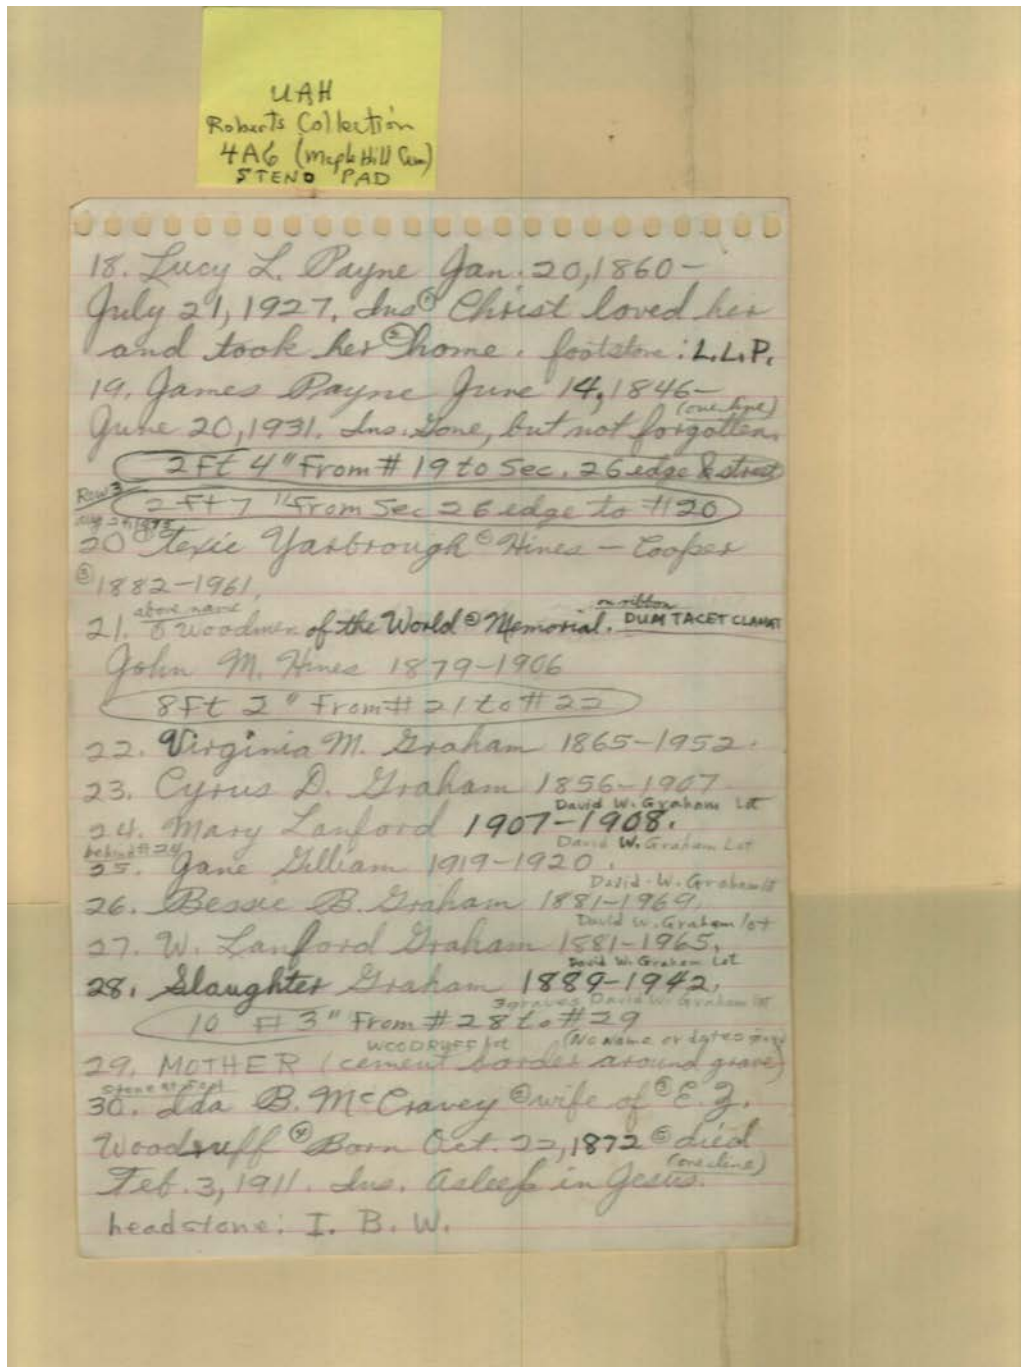 UAH
Roberts Collection
4A6 (Maple Hill Cem)
STENO PAD
18. Lucy L. Payne Jan. 20, 1860 –
July 21, 1927. Ins ① Christ loved her
and took her ② home. footstone: L.L.P.
19. James Payne June 14, 1846 –
(one line)
June 20, 1931. Ins. Gone, but not forgotten.
2 Ft 4" From # 19 to Sec. 26 edge & street
Row 3
2 Ft 7" From Sec 26 edge to #20
20 ① Texie Yarbrough ② Hines – Cooper
③ 1882–1961.
above name on ribbon
21. ① Woodmen of the World ② Memorial. DUM TACET CLAMAT
John M. Hines 1879–1906
8 Ft 2" From # 21 to # 22
22. Virginia M. Graham 1865–1952.
23. Cyrus D. Graham 1856–1907
David W. Graham Lot
24. Mary Lanford 1907–1908.
behind #24 David W. Graham Lot
25. Jane Gilliam 1919–1920.
David W. Graham lot
26. Bessie B. Graham 1881–1969.
David W. Graham lot
27. W. Lanford Graham 1881–1965.
David W. Graham Lot
28. Slaughter Graham 1889–1942.
3 graves David W. Graham lot
10 Ft 3" From # 28 to # 29
WOODRUFF lot (No name or dates
29. MOTHER (cement border around grave)
Stone at foot
30. Ida B. McCravey ② wife of ③ E. Z.
Woodruff ④ Born Oct. 22, 1872 ⑤ died
(one line)
Feb. 3, 1911. Ins. Asleep in Jesus.
headstone: I. B. W.